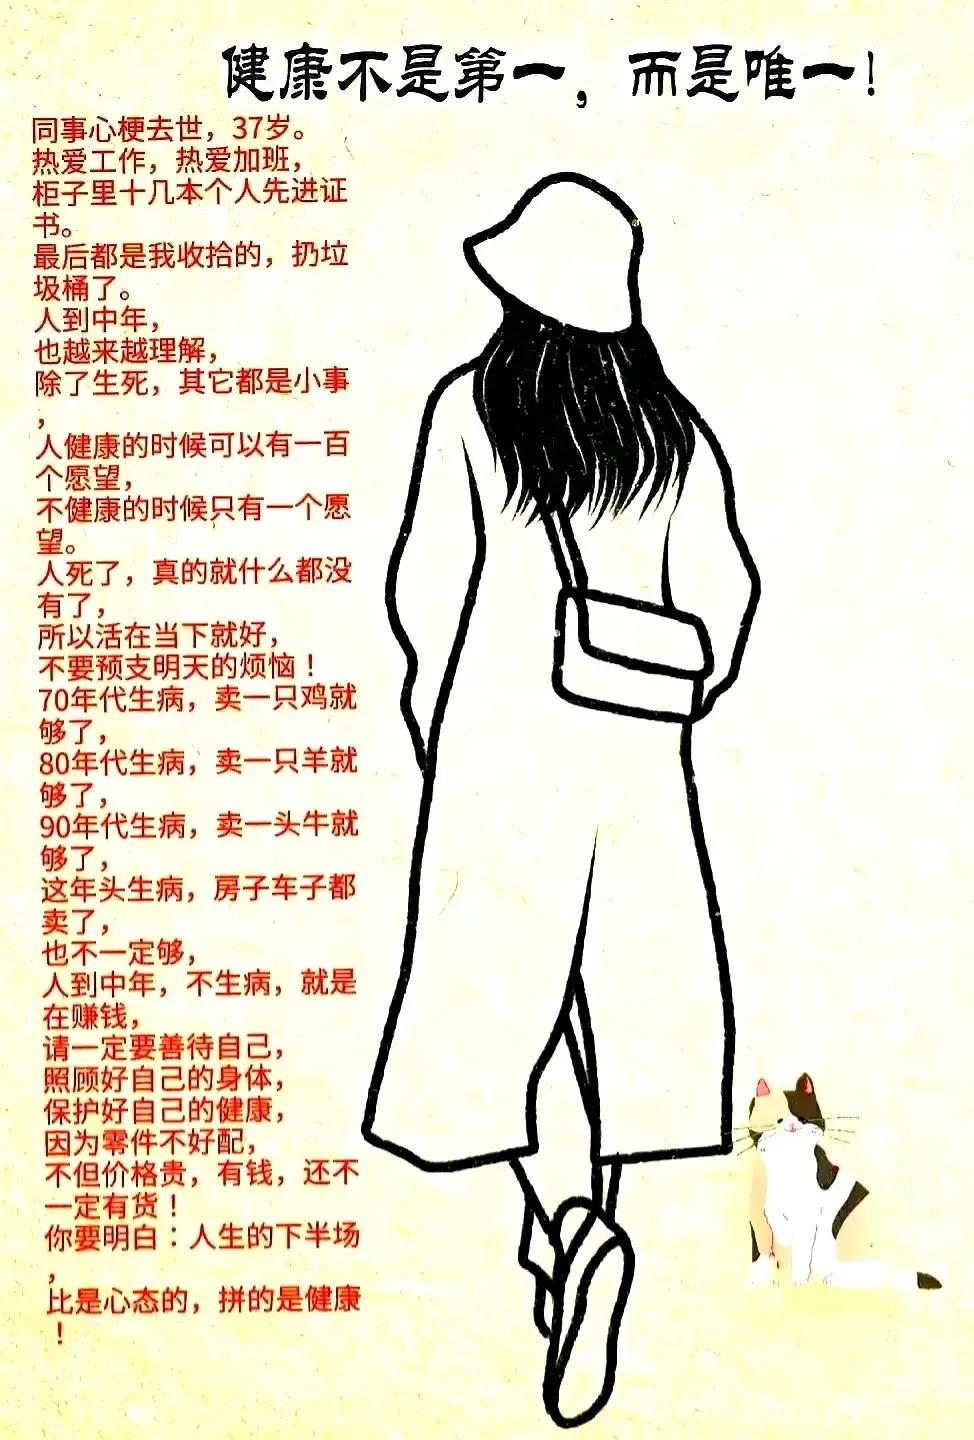 健康不是第一，而是唯一！
同事心梗去世，37岁。
热爱工作，热爱加班，
柜子里十几本个人先进证
书。
最后都是我收拾的，扔垃
圾桶了。
人到中年，
也越来越理解，
除了生死，其它都是小事
，
人健康的时候可以有一百
个愿望，
不健康的时候只有一个愿
望。
人死了，真的就什么都没
有了，
所以活在当下就好，
不要预支明天的烦恼！
70年代生病，卖一只鸡就
够了，
80年代生病，卖一只羊就
够了，
90年代生病，卖一头牛就
够了，
这年头生病，房子车子都
卖了，
也不一定够，
人到中年，不生病，就是
在赚钱，
请一定要善待自己，
照顾好自己的身体，
保护好自己的健康，
因为零件不好配，
不但价格贵，有钱，还不
一定有货！
你要明白：人生的下半场
，
比是心态的，拼的是健康
！